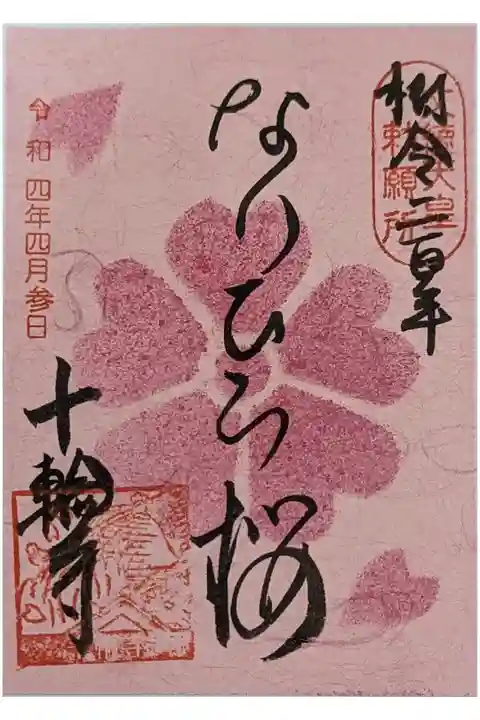 樹令二百年
文徳天皇
勅願所
なりひら桜
十輪寺
令和四年四月参日